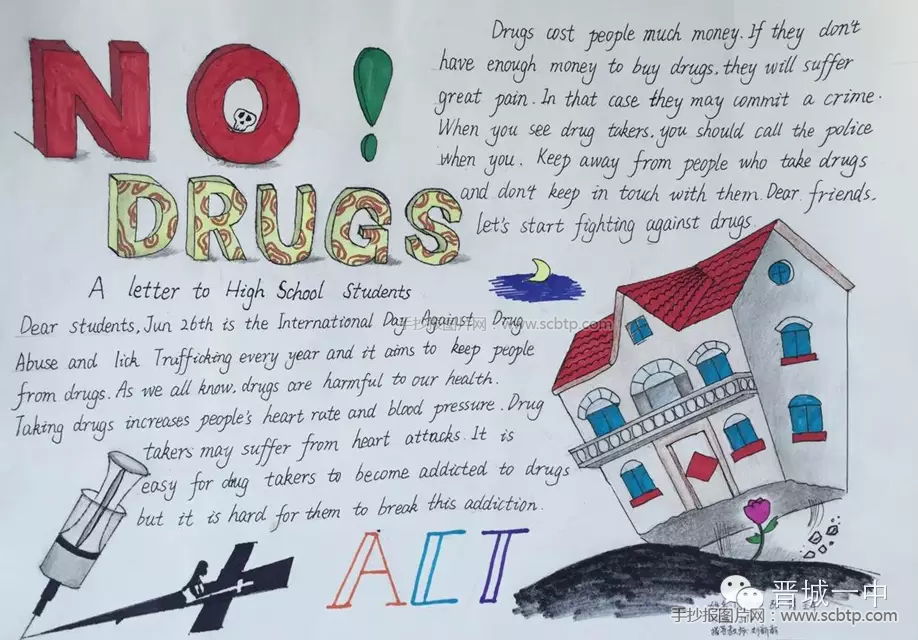 NO!
DRUGS
A letter to High School Students
Dear students, Jun 26th is the International Day Against Drug
Abuse and lick Trafficking every year and it aims to keep people
from drugs. As we all know, drugs are harmful to our health.
Taking drugs increases people's heart rate and blood pressure. Drug
takers may suffer from heart attacks. It is
easy for drug takers to become addicted to drugs
but it is hard for them to break this addiction.
Drugs cost people much money. If they don't
have enough money to buy drugs, they will suffer
great pain. In that case they may commit a crime.
When you see drug takers, you should call the police
when you. Keep away from people who take drugs
and don't keep in touch with them. Dear friends,
let's start fighting against drugs.
ACT
手抄报图片网:www.scbtp.com
晋城一中
手抄报图片网:www.scbtp.com
指导教师: